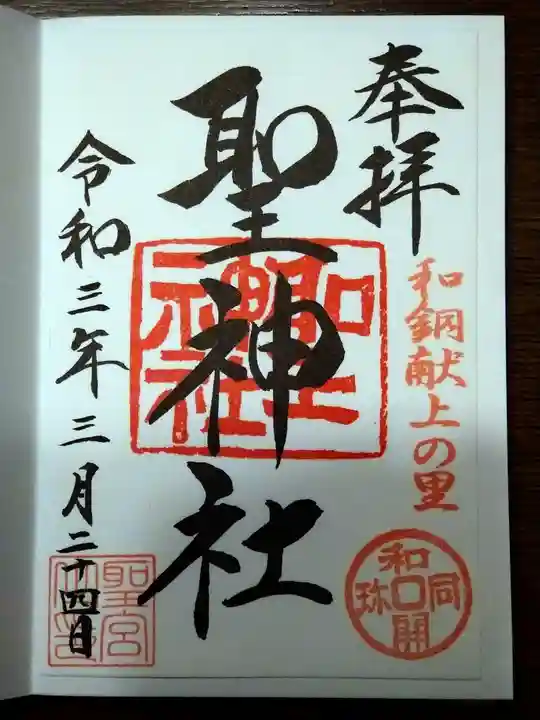 奉拝
和銅献上の里
和同開珎
聖神社
聖神社
令和三年三月二十四日
聖宮